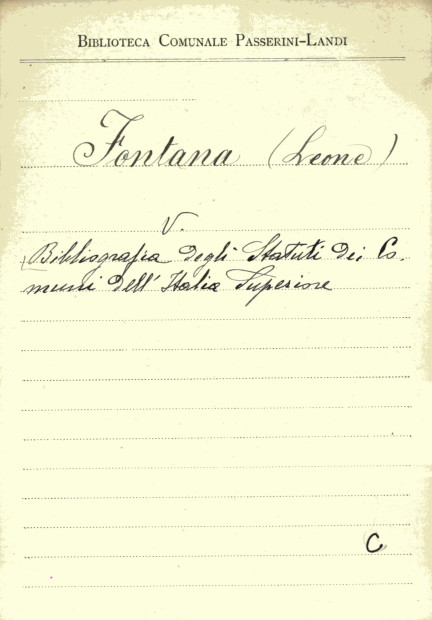 BIBLIOTECA COMUNALE PASSERINI-LANDI
Fontana (Leone)
V.
Bibliografia degli Statuti dei Co-
muni dell' Italia Superiore
C